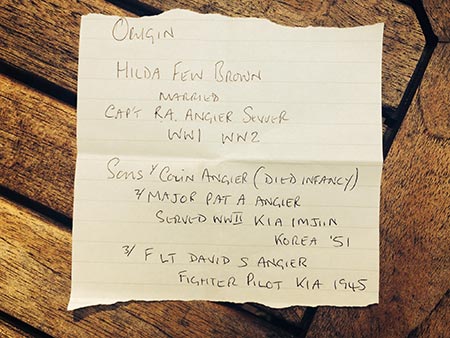 ORIGIN
HILDA FEW BROWN
MARRIED
CAPT RA. ANGIER
WW1 WW2
Sons 1/ COLIN ANGIER (DIED INFANCY)
2/ MAJOR PAT A ANGIER
SERVED WWII KIA IMJIN
KOREA '51
3/ F LT DAVID S ANGIER
FIGHTER PILOT KIA 1945